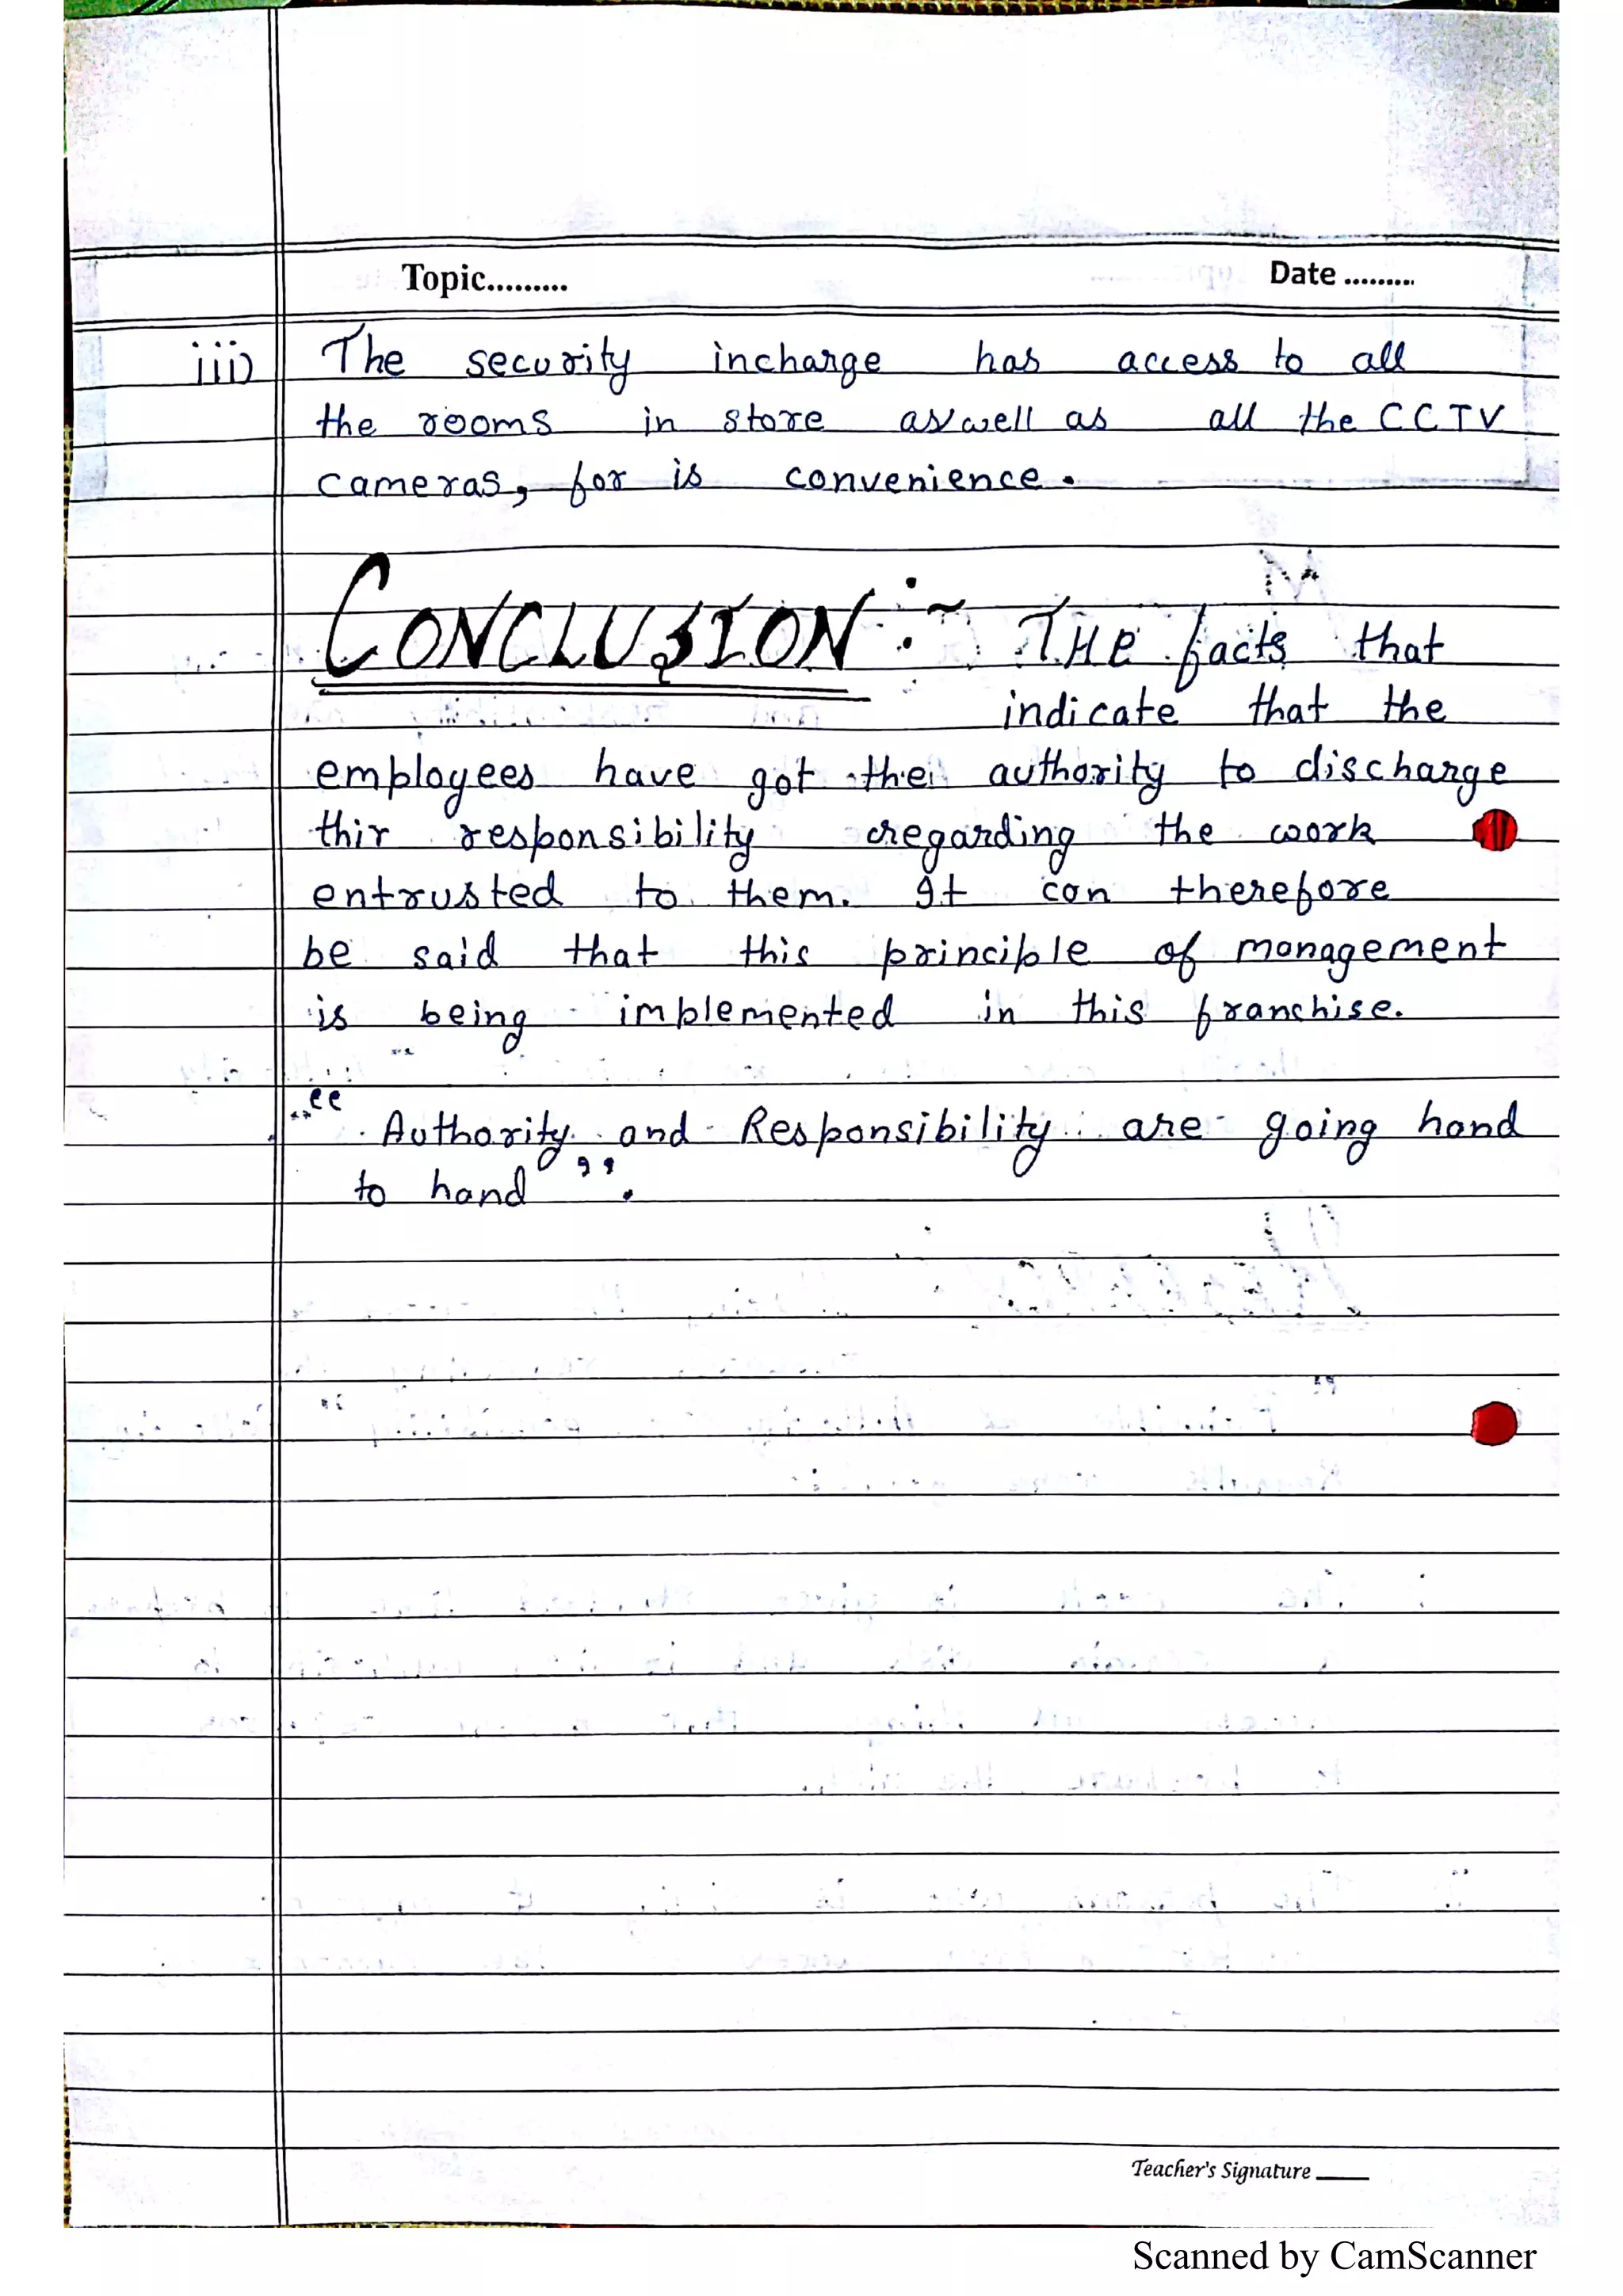 Topic......... Date .........
iii) The security incharge has access to all
the rooms in store aswell as all the CCTV
cameras, for is convenience.
CONCLUSION :~ THE facts that
indicate that the
employees have got the authority to discharge
thir responsibility regarding the work
entrusted to them. It can therefore
be said that this principle of management
is being implemented in this franchise.
“ Authority and Responsibility are going hand
to hand ”.
Teacher's Signature
Scanned by CamScanner